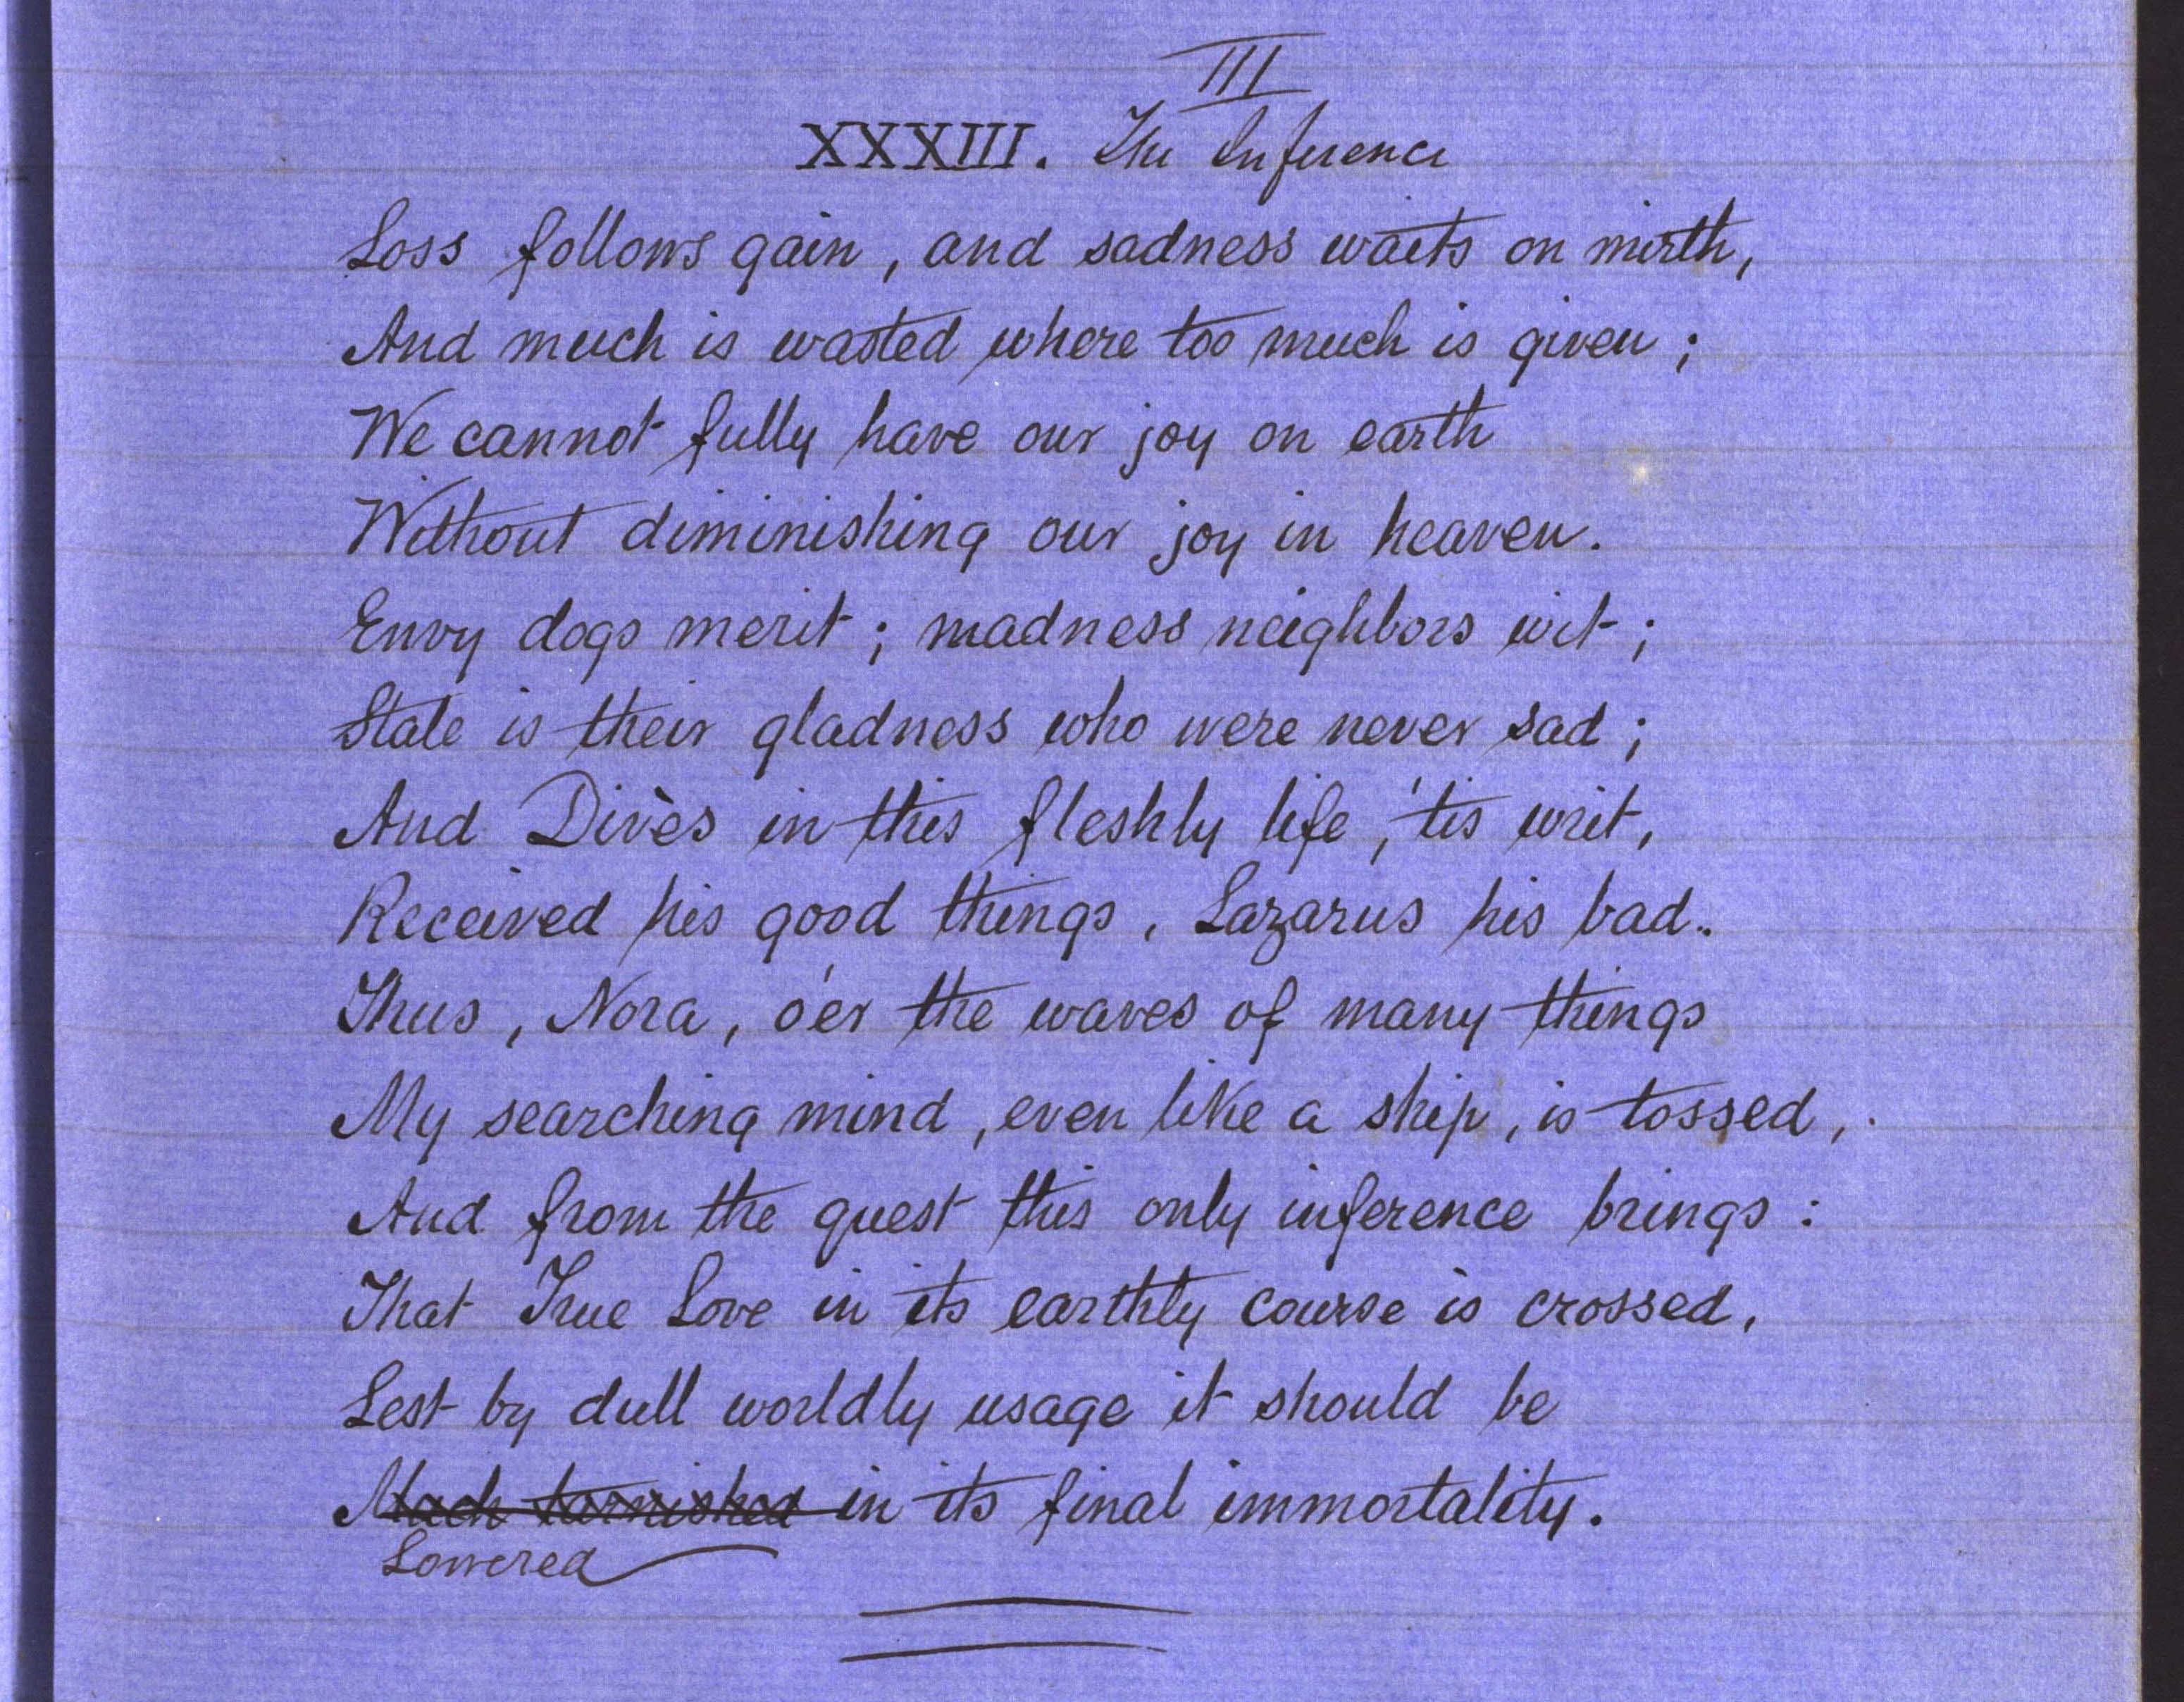 III
XXXIII. The Inference
Loss follows gain, and sadness waits on mirth,
And much is wasted where too much is given;
We cannot fully have our joy on earth
Without diminishing our joy in heaven.
Envy dogs merit; madness neighbors wit;
Stale is their gladness who were never sad;
And Divès in this fleshly life, 'tis writ,
Received his good things, Lazarus his bad.
Thus, Nora, o'er the waves of many things
My searching mind, even like a ship, is tossed,
And from the quest this only inference brings:
That True Love in its earthly course is crossed,
Lest by dull worldly usage it should be
Much tarnished in its final immortality.
Lowered